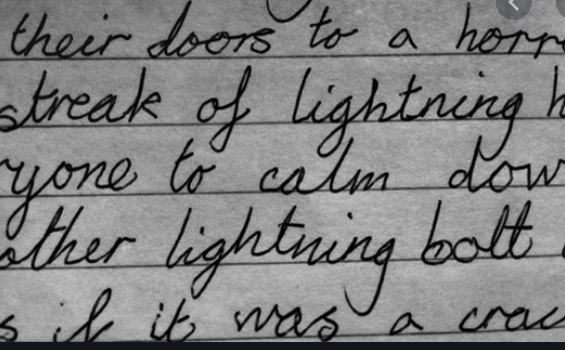 their doors to a horr
streak of lightning h
ryone to calm dow
other lightning bolt
s if it was a crac